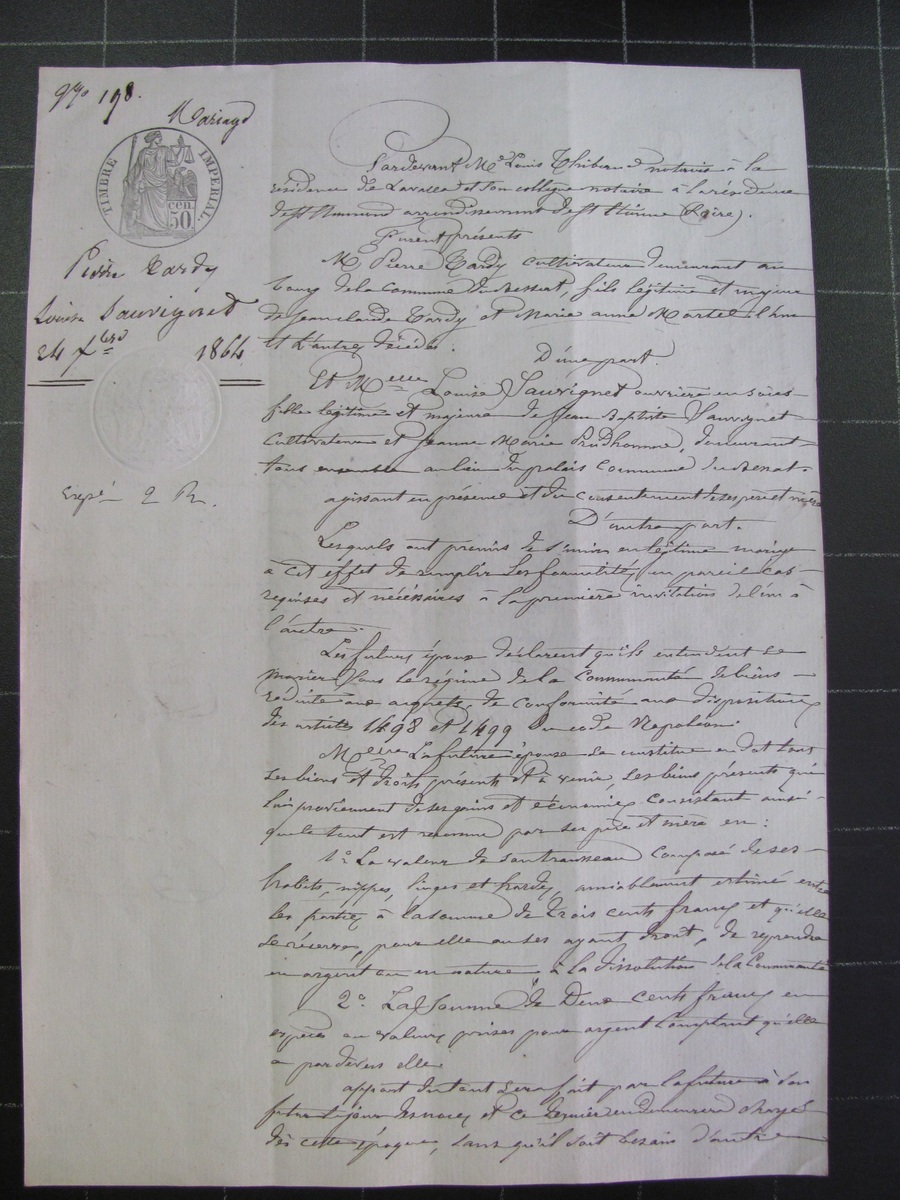 N° 198.
Mariage
TIMBRE IMPERIAL
50 cen.
Pierre Tardy
Louise Sauvignet
24 Xbre 1864
Expé 2 R.
Pardevant Me Louis notaire à la
résidence de Lavalla et son collègue notaire à la résidence
de St arrondissement de St Etienne (Loire).
Furent présents
M. Pierre Tardy cultivateur demeurant au
bourg de la commune du Bessat, fils légitime et majeur
de Jean Claude Tardy et Marie Anne Martel l'un
et l'autre décédés.
D'une part.
Et Melle Louise Sauvignet ouvrière en soies
fille légitime et majeure de Jean Baptiste Sauvignet
cultivateur et Jeanne Marie Prudhomme, demeurant
tous ensemble au lieu du palais commune du Bessat.
agissant en présence et du consentement de ses père et mère
D'autre part.
Lesquels ont promis de s'unir en légitime mariage
à cet effet de remplir les formalités en pareil cas
requises et nécessaires à la première invitation de l'un à
l'autre.
Les futurs époux déclarent qu'ils entendent se
marier sous le régime de la communauté de biens
réduite aux acquets, de conformité aux dispositions
des articles 1498 et 1499 du code Napoléon.
Melle la future épouse se constitue en dot tous
ses biens et droits présents et à venir, ses biens présents qui
lui proviennent de ses gains et économies consistant ainsi
que le tout est reconnu par ses père et mère en :
1° La valeur de son trousseau composé de ses
habits, nippes, linges et hardes, amiablement estimé entre
les parties à la somme de trois cents francs et qu'elle
se réserve, pour elle ou ses ayant droit, de reprendre
en argent ou en nature à la dissolution de la communauté
2° La somme de Deux cents francs en
espèces ou valeurs prises pour argent comptant qu'elle
a pardevers elle.
apport du tout sera fait par la future à son
futur le jour des noces et ce dernier en demeurera chargé
dès cette époque, sans qu'il soit besoin d'autre